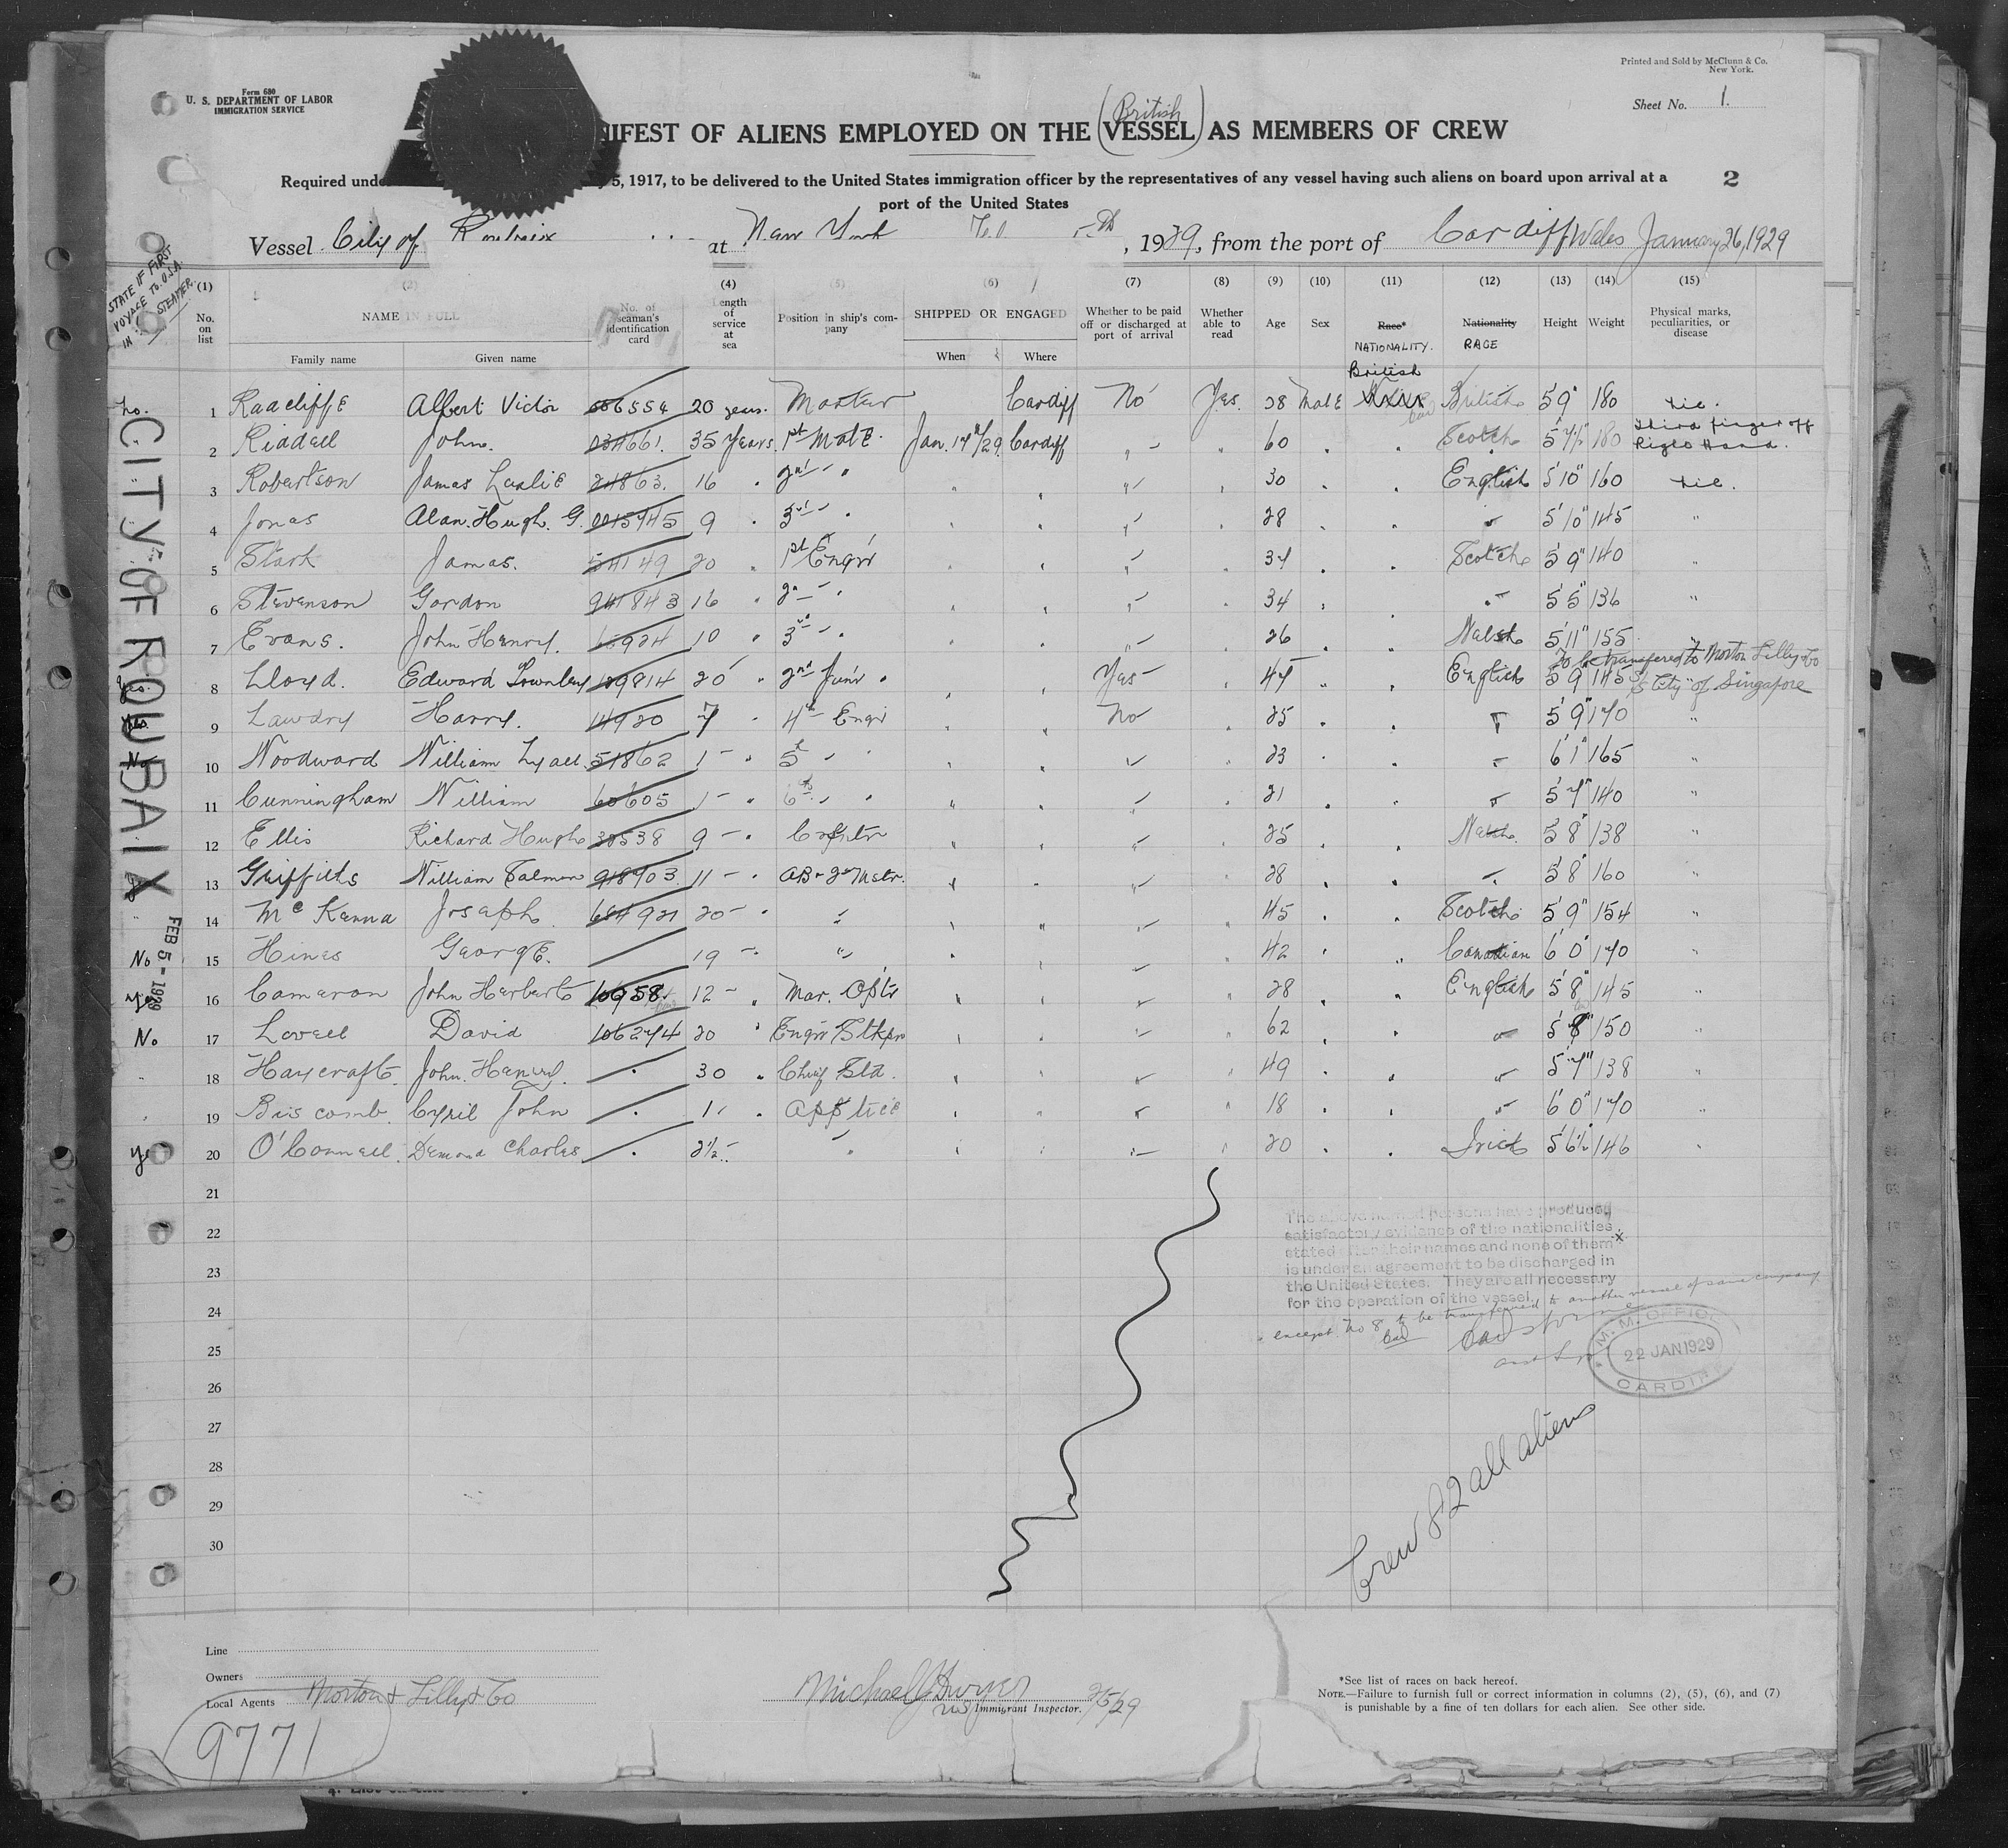 Printed and Sold by McClunn & Co.
New York.
Form 680
U. S. DEPARTMENT OF LABOR
IMMIGRATION SERVICE
Sheet No. 1.
(British)
IFEST OF ALIENS EMPLOYED ON THE VESSEL AS MEMBERS OF CREW
Required unde 5, 1917, to be delivered to the United States immigration officer by the representatives of any vessel having such aliens on board upon arrival at a
port of the United States
2
Vessel City of Roubaix at New York 5th, 1929, from the port of Cardiff Wales January 26, 1929
STATE IF FIRST VOYAGE TO U.S.A. IN STEAMER
(1) No. on list
(2) NAME IN FULL Family name Given name
No. of seaman's identification card
(4) Length of service at sea
(5) Position in ship's company
(6) SHIPPED OR ENGAGED When Where
(7) Whether to be paid off or discharged at port of arrival
(8) Whether able to read
(9) Age
(10) Sex
(11) Race* NATIONALITY.
(12) Nationality RACE
(13) Height
(14) Weight
(15) Physical marks, peculiarities, or disease
British
No. 1 Radcliffe Albert Victor 20 years. Master Cardiff No Yes. 38 Male British 5' 9" 180 nil.
2 Riddell John. 35 years. 1st Mate. Jan. 17th/29 Cardiff " " 60 " " Scotch 5' 7½" 180 third finger off Right Hand.
3 Robertson James Leslie 24863. 16 " 2nd " " " " " " 30 " " English 5' 10" 160 nil.
4 Jones Alan. Hugh. G. 0015745 9 " 3rd " " " " " " 28 " " " 5' 10" 145 "
5 Stark James. 54149 20 " 1st Engr " " " " 37 " " Scotch 5' 9" 140 "
6 Stevenson Gordon 941843 16 " 2nd " " " " " " 34 " " " 5' 5" 136 "
7 Evans. John Henry. 10 " 3rd " " " " " " 26 " " Welsh 5' 11" 155 "
Yes. 8 Lloyd. Edward Townley 109814 20 " 2nd Junr " " " Yes " 45 " " English 5' 9" 145 To be transfered to Morton Lilly & Co SS "City of Singapore
Yes. 9 Lawdry Harry. 14920 7 " 4th Engr " " No " 25 " " " 5' 9" 170 "
No 10 Woodward William Lyall. 51862 1 " 5th " " " " " " 23 " " " 6' 1" 165 "
11 Cunningham William 60605 1 " 6th " " " " " " 21 " " " 5' 7" 140 "
12 Ellis Richard Hugh 30538 9 " Crpntr " " " " 25 " " Welsh. 5' 8" 138 "
13 Griffiths William Salmon 918703 11 " AB " " " " 28 " " " 5' 8" 160 "
" 14 McKenna Joseph 684921 20 " " " " " " 45 " " Scotch 5' 9" 154 "
No 15 Hines George. 19 " " " " " " 42 " " Canadian 6' 0" 170 "
Yes 16 Cameron John Herbert 10958. 12 " Mar. Optr " " " " 28 " " English 5' 8" 145 "
No 17 Lovell David 106274 20 " Engrs Stkpr " " " " 62 " " " 5' 8" 150 "
" 18 Haycraft. John. Henry. 30 " Chief Std. " " " " 49 " " " 5' 7" 138 "
" 19 Biscomb. Cyril John 1 " Apptice " " " " 18 " " " 6' 0" 170 "
Yes 20 O'Connell. Desmond Charles 2½ " " " " " " 20 " " Irish 5' 6½" 146 "
21
22
23
24
25
26
27
28
29
30
CITY OF ROUBAIX
FEB 5 - 1929
The above named persons have produced
satisfactory evidence of the nationalities
stated after their names and none of them x
is under an agreement to be discharged in
the United States. They are all necessary
for the operation of the vessel.
x except No 8 to be transferred to another vessel of same company
M. M. OFFICE
22 JAN 1929
CARDIFF
Crew 82 all aliens
Line
Owners
Local Agents Morton & Lilly & Co
9771
Michael J Dwyer
US Immigrant Inspector. 2/5/29
*See list of races on back hereof.
NOTE.—Failure to furnish full or correct information in columns (2), (5), (6), and (7)
is punishable by a fine of ten dollars for each alien. See other side.